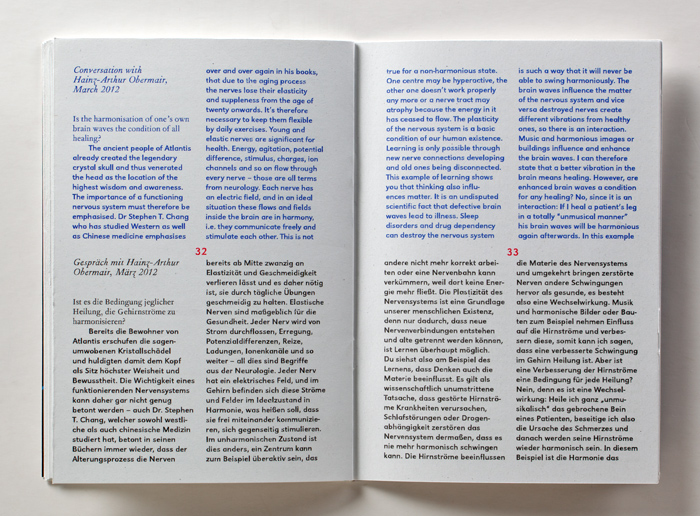 Conversation with
Hainz-Arthur Obermair,
March 2012
Is the harmonisation of one's own
brain waves the condition of all
healing?
The ancient people of Atlantis
already created the legendary
crystal skull and thus venerated
the head as the location of the
highest wisdom and awareness.
The importance of a functioning
nervous system must therefore be
emphasised. Dr Stephen T. Chang
who has studied Western as well
as Chinese medicine emphasises
over and over again in his books,
that due to the aging process
the nerves lose their elasticity
and suppleness from the age of
twenty onwards. It's therefore
necessary to keep them flexible
by daily exercises. Young and
elastic nerves are significant for
health. Energy, agitation, potential
difference, stimulus, charges, ion
channels and so on flow through
every nerve – those are all terms
from neurology. Each nerve has
an electric field, and in an ideal
situation these flows and fields
inside the brain are in harmony,
i.e. they communicate freely and
stimulate each other. This is not
32
Gespräch mit Hainz-Arthur
Obermair, März 2012
Ist es die Bedingung jeglicher
Heilung, die Gehirnströme zu
harmonisieren?
Bereits die Bewohner von
Atlantis erschufen die sagen-
umwobenen Kristallschädel
und huldigten damit dem Kopf
als Sitz höchster Weisheit und
Bewusstheit. Die Wichtigkeit eines
funktionierenden Nervensystems
kann daher gar nicht genug
betont werden – auch Dr. Stephen
T. Chang, welcher sowohl westli-
che als auch chinesische Medizin
studiert hat, betont in seinen
Büchern immer wieder, dass der
Alterungsprozess die Nerven
bereits ab Mitte zwanzig an
Elastizität und Geschmeidigkeit
verlieren lässt und es daher nötig
ist, sie durch tägliche Übungen
geschmeidig zu halten. Elastische
Nerven sind maßgeblich für die
Gesundheit. Jeder Nerv wird von
Strom durchflossen, Erregung,
Potenzialdifferenzen, Reize,
Ladungen, Ionenkanäle und so
weiter – all dies sind Begriffe
aus der Neurologie. Jeder Nerv
hat ein elektrisches Feld, und im
Gehirn befinden sich diese Ströme
und Felder im Idealzustand in
Harmonie, was heißen soll, dass
sie frei miteinander kommunizie-
ren, sich gegenseitig stimulieren.
Im unharmonischen Zustand ist
dies anders, ein Zentrum kann
zum Beispiel überaktiv sein, das
true for a non-harmonious state.
One centre may be hyperactive, the
other one doesn't work properly
any more or a nerve tract may
atrophy because the energy in it
has ceased to flow. The plasticity
of the nervous system is a basic
condition of our human existence.
Learning is only possible through
new nerve connections developing
and old ones being disconnected.
This example of learning shows
you that thinking also influ-
ences matter. It is an undisputed
scientific fact that defective brain
waves lead to illness. Sleep
disorders and drug dependency
can destroy the nervous system
is such a way that it will never be
able to swing harmoniously. The
brain waves influence the matter
of the nervous system and vice
versa destroyed nerves create
different vibrations from healthy
ones, so there is an interaction.
Music and harmonious images or
buildings influence and enhance
the brain waves. I can therefore
state that a better vibration in the
brain means healing. However, are
enhanced brain waves a condition
for any healing? No, since it is an
interaction: If I heal a patient's leg
in a totally "unmusical manner"
his brain waves will be harmonious
again afterwards. In this example
33
andere nicht mehr korrekt arbei-
ten oder eine Nervenbahn kann
verkümmern, weil dort keine Ener-
gie mehr fließt. Die Plastizität des
Nervensystems ist eine Grundlage
unserer menschlichen Existenz,
denn nur dadurch, dass neue
Nervenverbindungen entstehen
und alte getrennt werden können,
ist Lernen überhaupt möglich.
Du siehst also am Beispiel des
Lernens, dass Denken auch die
Materie beeinflusst. Es gilt als
wissenschaftlich unumstrittene
Tatsache, dass gestörte Hirnströ-
me Krankheiten verursachen,
Schlafstörungen oder Drogen-
abhängigkeit zerstören das
Nervensystem dermaßen, dass es
nie mehr harmonisch schwingen
kann. Die Hirnströme beeinflussen
die Materie des Nervensystems
und umgekehrt bringen zerstörte
Nerven andere Schwingungen
hervor als gesunde, es besteht
also eine Wechselwirkung. Musik
und harmonische Bilder oder Bau-
ten zum Beispiel nehmen Einfluss
auf die Hirnströme und verbes-
sern diese, somit kann ich sagen,
dass eine verbesserte Schwingung
im Gehirn Heilung ist. Aber ist
eine Verbesserung der Hirnströme
eine Bedingung für jede Heilung?
Nein, denn es ist eine Wechsel-
wirkung: Heile ich ganz „unmu-
sikalisch“ das gebrochene Bein
eines Patienten, beseitige ich also
die Ursache des Schmerzes und
danach werden seine Hirnströme
wieder harmonisch sein. In diesem
Beispiel ist die Harmonie das